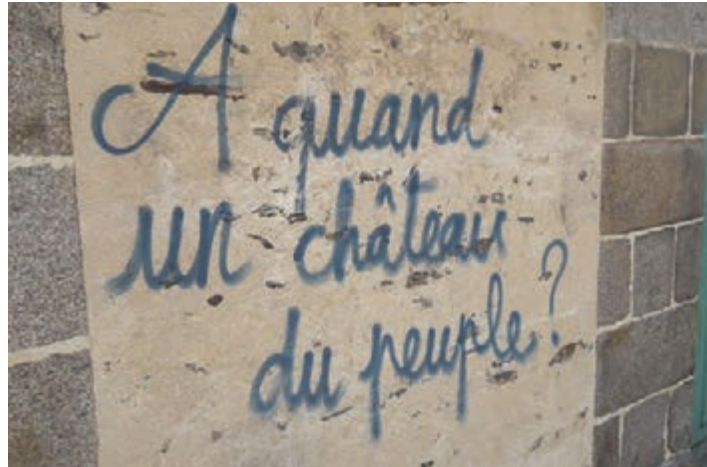 A quand
un château
du peuple?